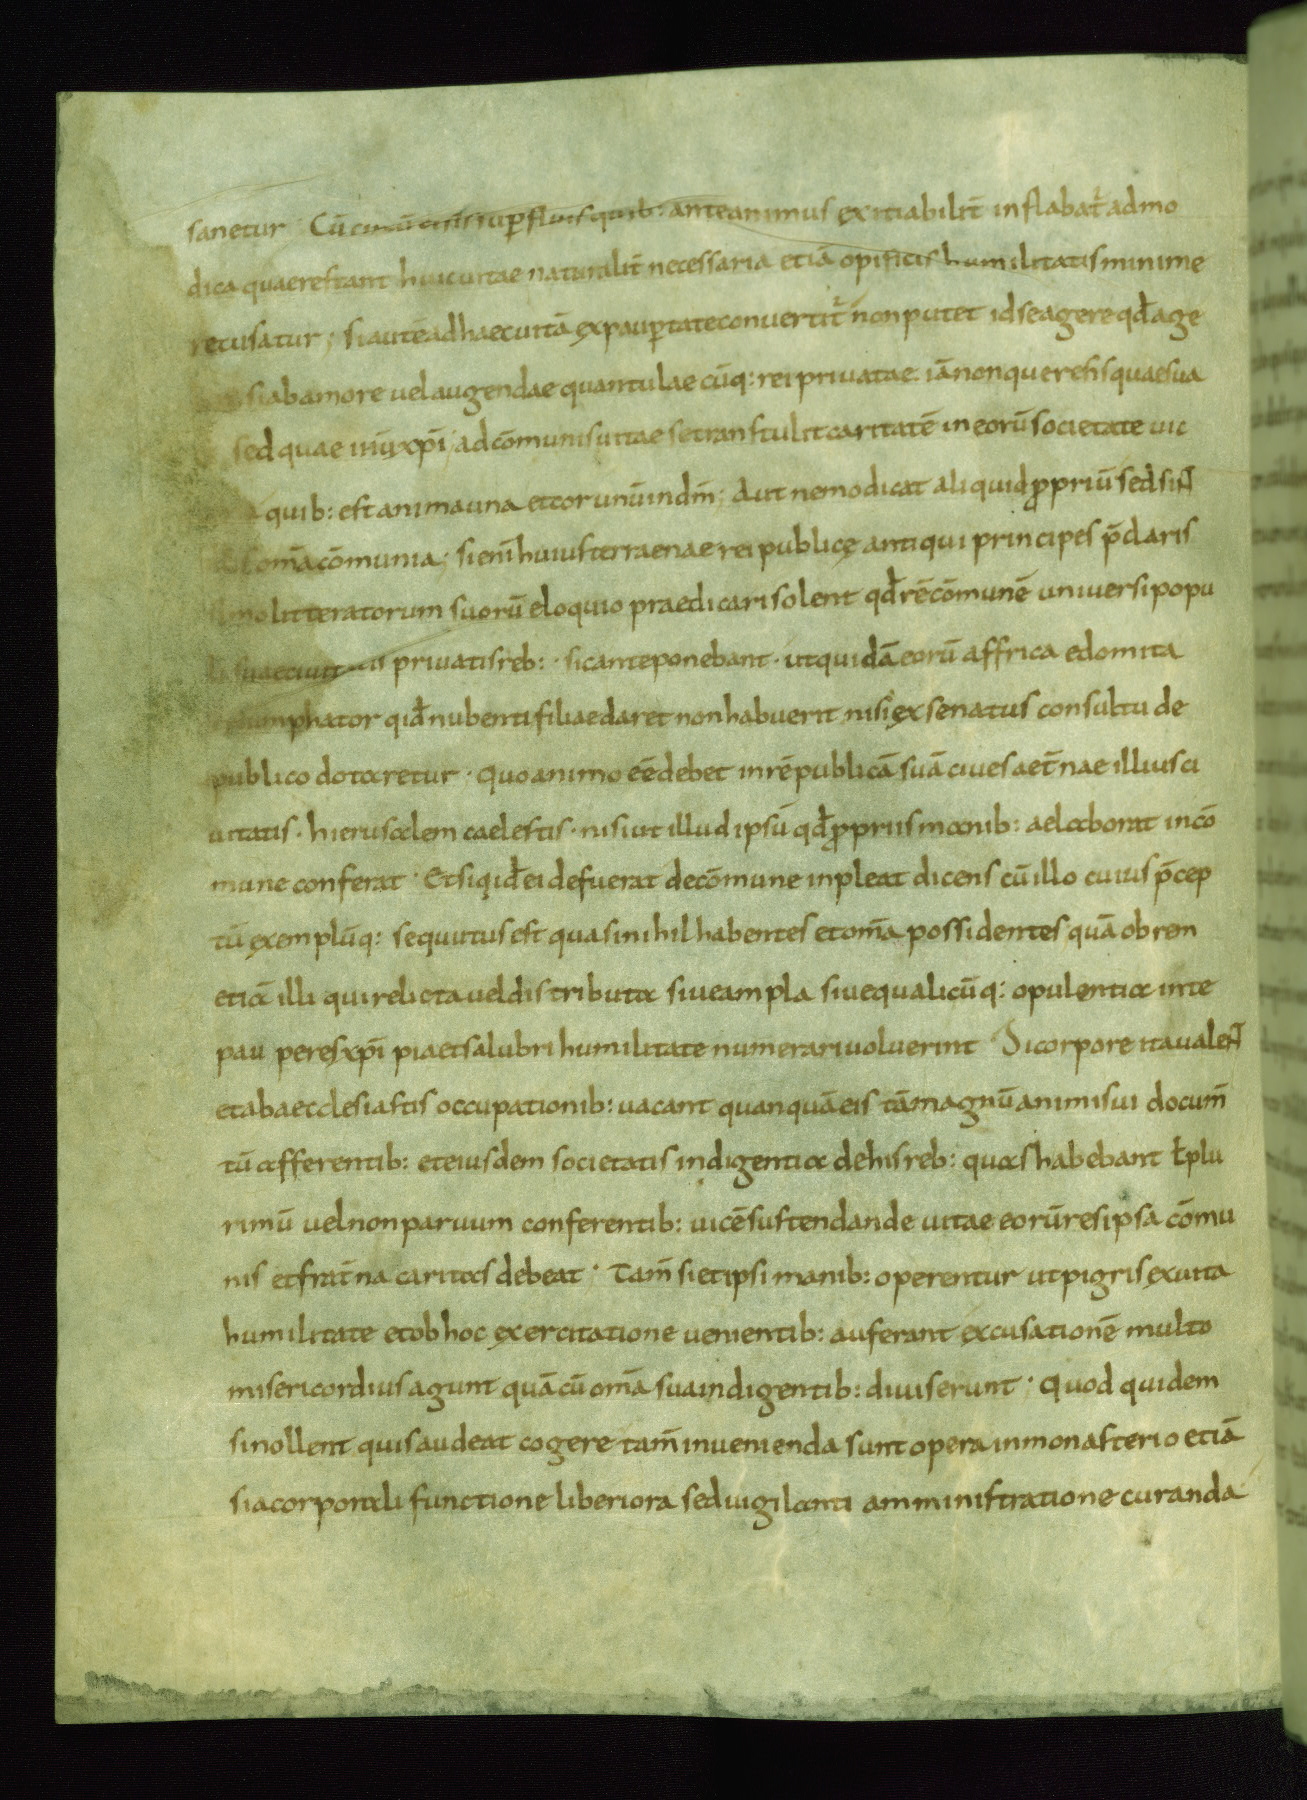 sanetur · Cū cunctis supfluis quib: ante animus exitiabilit̄ inflabat̄ ad mo
dica quae restant huic uitae naturalit̄ necessaria etiā opificis humilitatis minime
recusatur; si autē ad haec uitā ex paupertate conuertit̄ non putet id se agere qd̄ age
si ab amore uel augendae quantulae cūq: rei priuatae iā non querens quae sua
sed quae ih̄u xp̄i ad cōmunis uitae se transtulit caritatē in eorū societate uic
quib: est anima una et cor unū in dn̄; Aut nemo dicat aliquid ꝓpriū sed siNT
om̄a cōmunia; si enī huius terraenae rei publicę antiqui principes p̄claris
litteratorum suorū eloquio praedicari solent qd̄ rē cōmunē uniuersi popu
suae ciuitatis priuatis reb: · sic anteponebant · ut quidā eorū affrica edomita
umphator qid̄ nubenti filiae daret non habuerit nisi ex senatus consultu de
publico dotaretur · quo animo eē debet in rē publicā suā ciues aet̄nae illius ci
uitatis · hierusalem caelestis · nisi ut illud ipsū qd̄ ꝓpriis manib: aelaborat in cō
mune conferat · Et si qid̄ ei defuerat de cōmune inpleat dicens cū illo cuius p̄cep
tū exemplūq: sequutus est quasi nihil habentes et om̄a possidentes quā ob rem
etiā illi qui relicta uel distributa siue ampla siue qualicūq: opulentia inte
pau peres xp̄i pia et salubri humilitate numerari uoluerint Si corpore ita ualeNT
et ab aecclesiastis occupationib: uacant quanquā eis tā magnū animi sui docum̄
tū afferentib: et eiusdem societatis indigentia de his reb: quas habebant ł plu
rimū uel non paruum conferentib: uicē sustendande uitae eorū res ipsa cōmu
nis et frat̄na caritas debeat · Tam̄ si et ipsi manib: operentur ut pigris ex uita
humilitate et ob hoc exercitatione uenientib: auferant excusationē multo
misericordius agunt quā cū om̄a sua indigentib: diuiserunt · Quod quidem
si nollent quis audeat cogere tam̄ inuenienda sunt opera in monasterio etiā
si a corporali functione liberiora sed uigilanti amministratione curanda